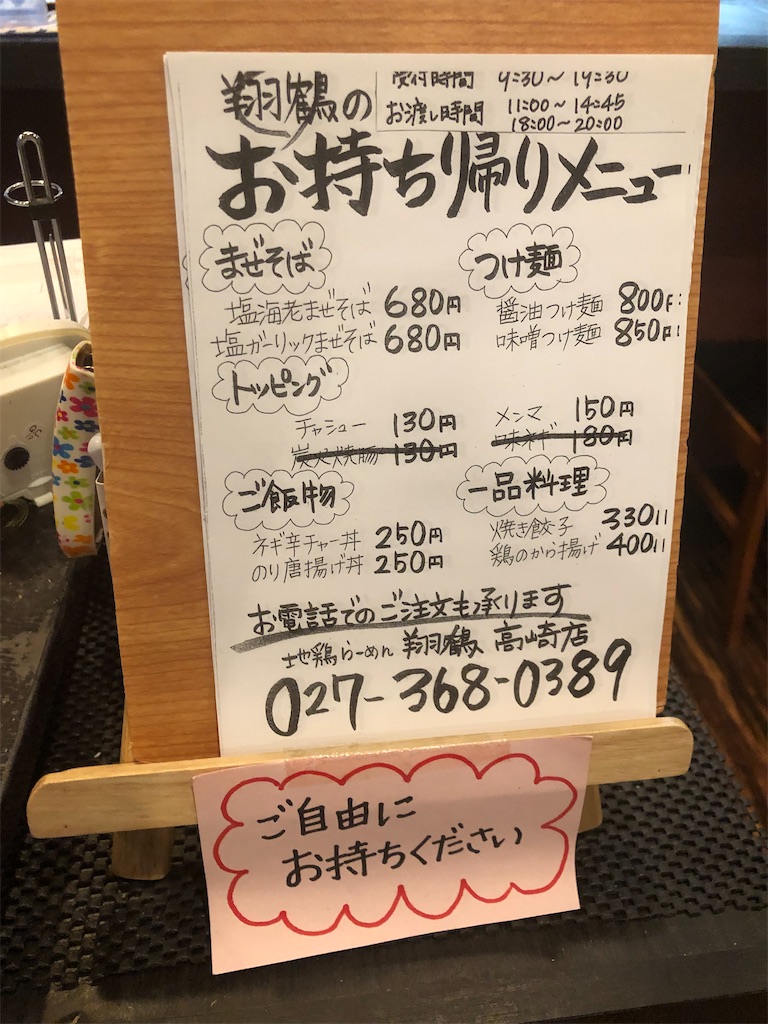 翔鶴の
受付時間 9:30～19:30
お渡し時間 11:00～14:45
18:00～20:00
お持ち帰りメニュー
まぜそば
塩海老まぜそば 680円
塩ガーリックまぜそば 680円
つけ麺
醤油つけ麺 800円
味噌つけ麺 850円
トッピング
チャシュー 130円
炭火焼豚 130円
メンマ 150円
味ネギ 180円
ご飯物
ネギ辛チャー丼 250円
のり唐揚げ丼 250円
一品料理
焼き餃子 330〃
鶏のから揚げ 400〃
お電話でのご注文も承ります
地鶏らーめん 翔鶴 高崎店
027-368-0389
ご自由に
お持ちください